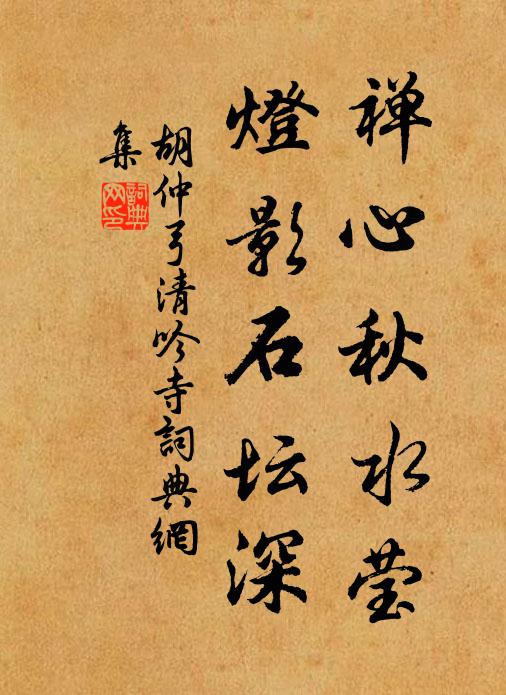 禅心秋水莹
燈影石坛深
胡仲弓清吟寺詞典網
集
詞典网印